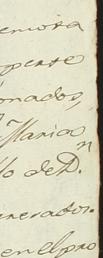 emora
uperse
ionados,
Maria
lo de Dn
eneradas.
en el pro